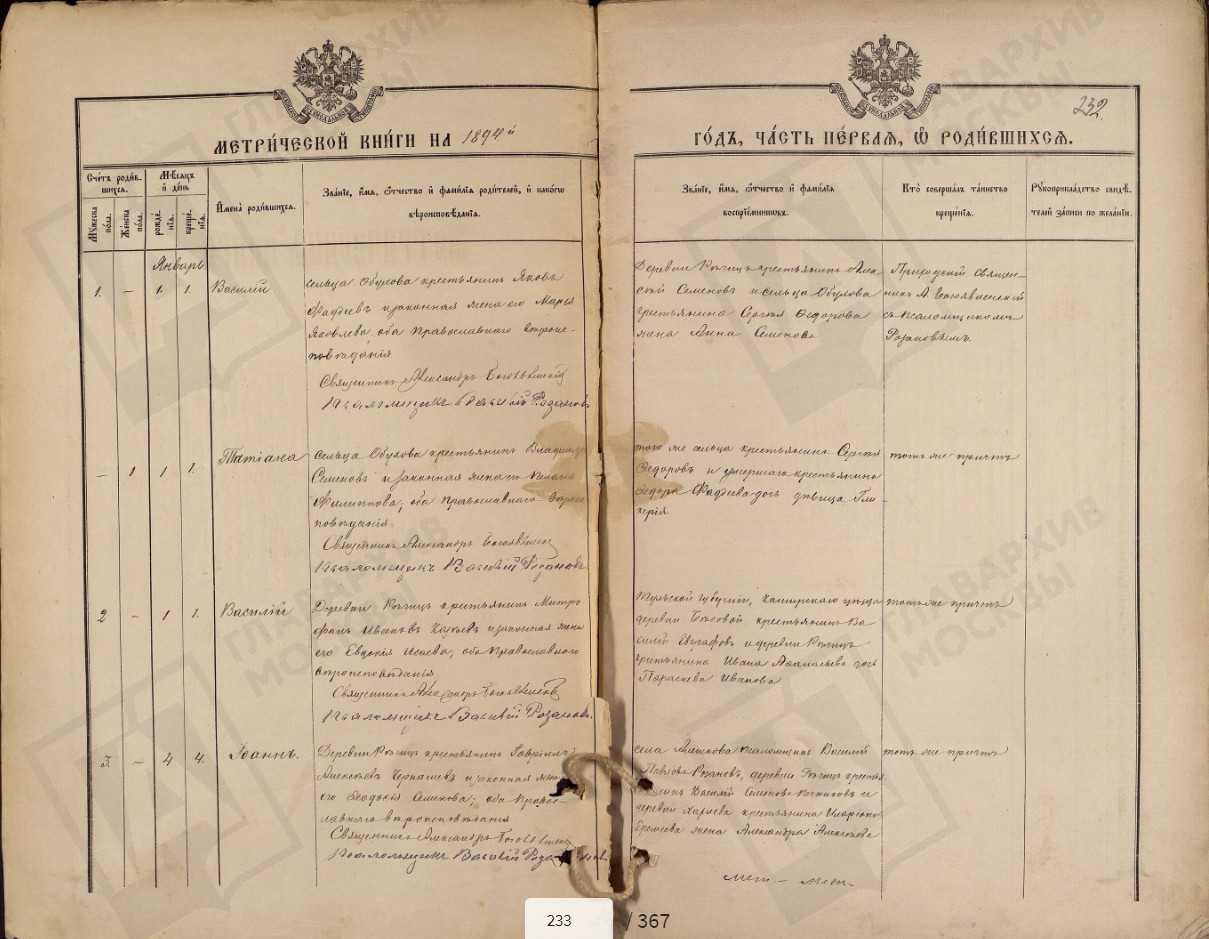 МЕТРИ́ЧЕСКОЙ КНИ́ГИ НА 1894й
ГО́ДЪ, ЧА́СТЬ ПЕ́РВАЯ, Ѡ РОДИ́ВШИХСЯ.
232
Сче́тъ роди́в-
шихся.
Му́жеска по́ла.
Же́нска по́ла.
Мѣ́сяцъ и де́нь
рожде́нія.
креще́нія.
Имена́ роди́вшихся.
Зва́ніе, и́мя, ѻ́тчество и фами́лія роди́телей, и како́гѡ
вѣроисповѣ́данія.
Зва́ніе, и́мя, ѻ́тчество и фами́лія
воспріе́мниковъ.
Кто̀ соверша́лъ та́инство
креще́нія.
Рꙋкоприкла́дство свидѣ́-
телей за́писи по жела́нію.
Январь
1. – 1. 1. Василій
сельца Обухова крестьянинъ Яковъ
Фадѣевъ и законная жена его Марья
Яковлева, оба Православнаго вѣроис-
повѣданія
Священникъ Александръ Богоявленскій
Псаломщикъ Василій Розановъ
крестьянинъ
Семеновъ и сельца Обухова
крестьянина Сергія Ѳедорова
жена Анна Семенова
Приходскій Священ-
никъ А. Богоявленскій
съ псаломщикомъ
Розановымъ.
– 1 1 1. Татіана
сельца Обухова крестьянинъ Владиміръ
Семеновъ и законная жена его
Филиппова, оба Православнаго вѣроис-
повѣданія
Священникъ Александръ Богоявленскій
Псаломщикъ Василій Розановъ
того же сельца крестьянинъ Сергій
Ѳедоровъ и умершаго крестьянина
Ѳедора Фадѣева дочь дѣвица Гли-
керія
тотъ же причтъ
2 – 1 1. Василій
Деревни крестьянинъ Митро-
фанъ Ивановъ и законная жена
его Евдокія Исаева, оба Православнаго
вѣроисповѣданія
Священникъ Александръ Богоявленскій
Псаломщикъ Василій Розановъ.
Тульской губерніи, Каширскаго уѣзда
деревни крестьянинъ Ва-
силій Евграфовъ и деревни
крестьянина Ивана Аѳанасьева дочь
Параскева Иванова
тотъ же причтъ
3 – 4 4. Іоаннъ.
Деревни крестьянинъ Гавріилъ
Алексѣевъ и законная жена
его Ѳеодосія Семенова, оба Право-
славнаго вѣроисповѣданія
Священникъ Александръ Богоявленскій
Псаломщикъ Василій Розановъ
села псаломщикъ Василій
Павловъ Розановъ, деревни
Василій Семеновъ и
деревни крестьянина Иларіона
Еремѣева жена Александра Алексѣева
тотъ же причтъ
233 / 367
ГЛАВАРХИВ
МОСКВЫ